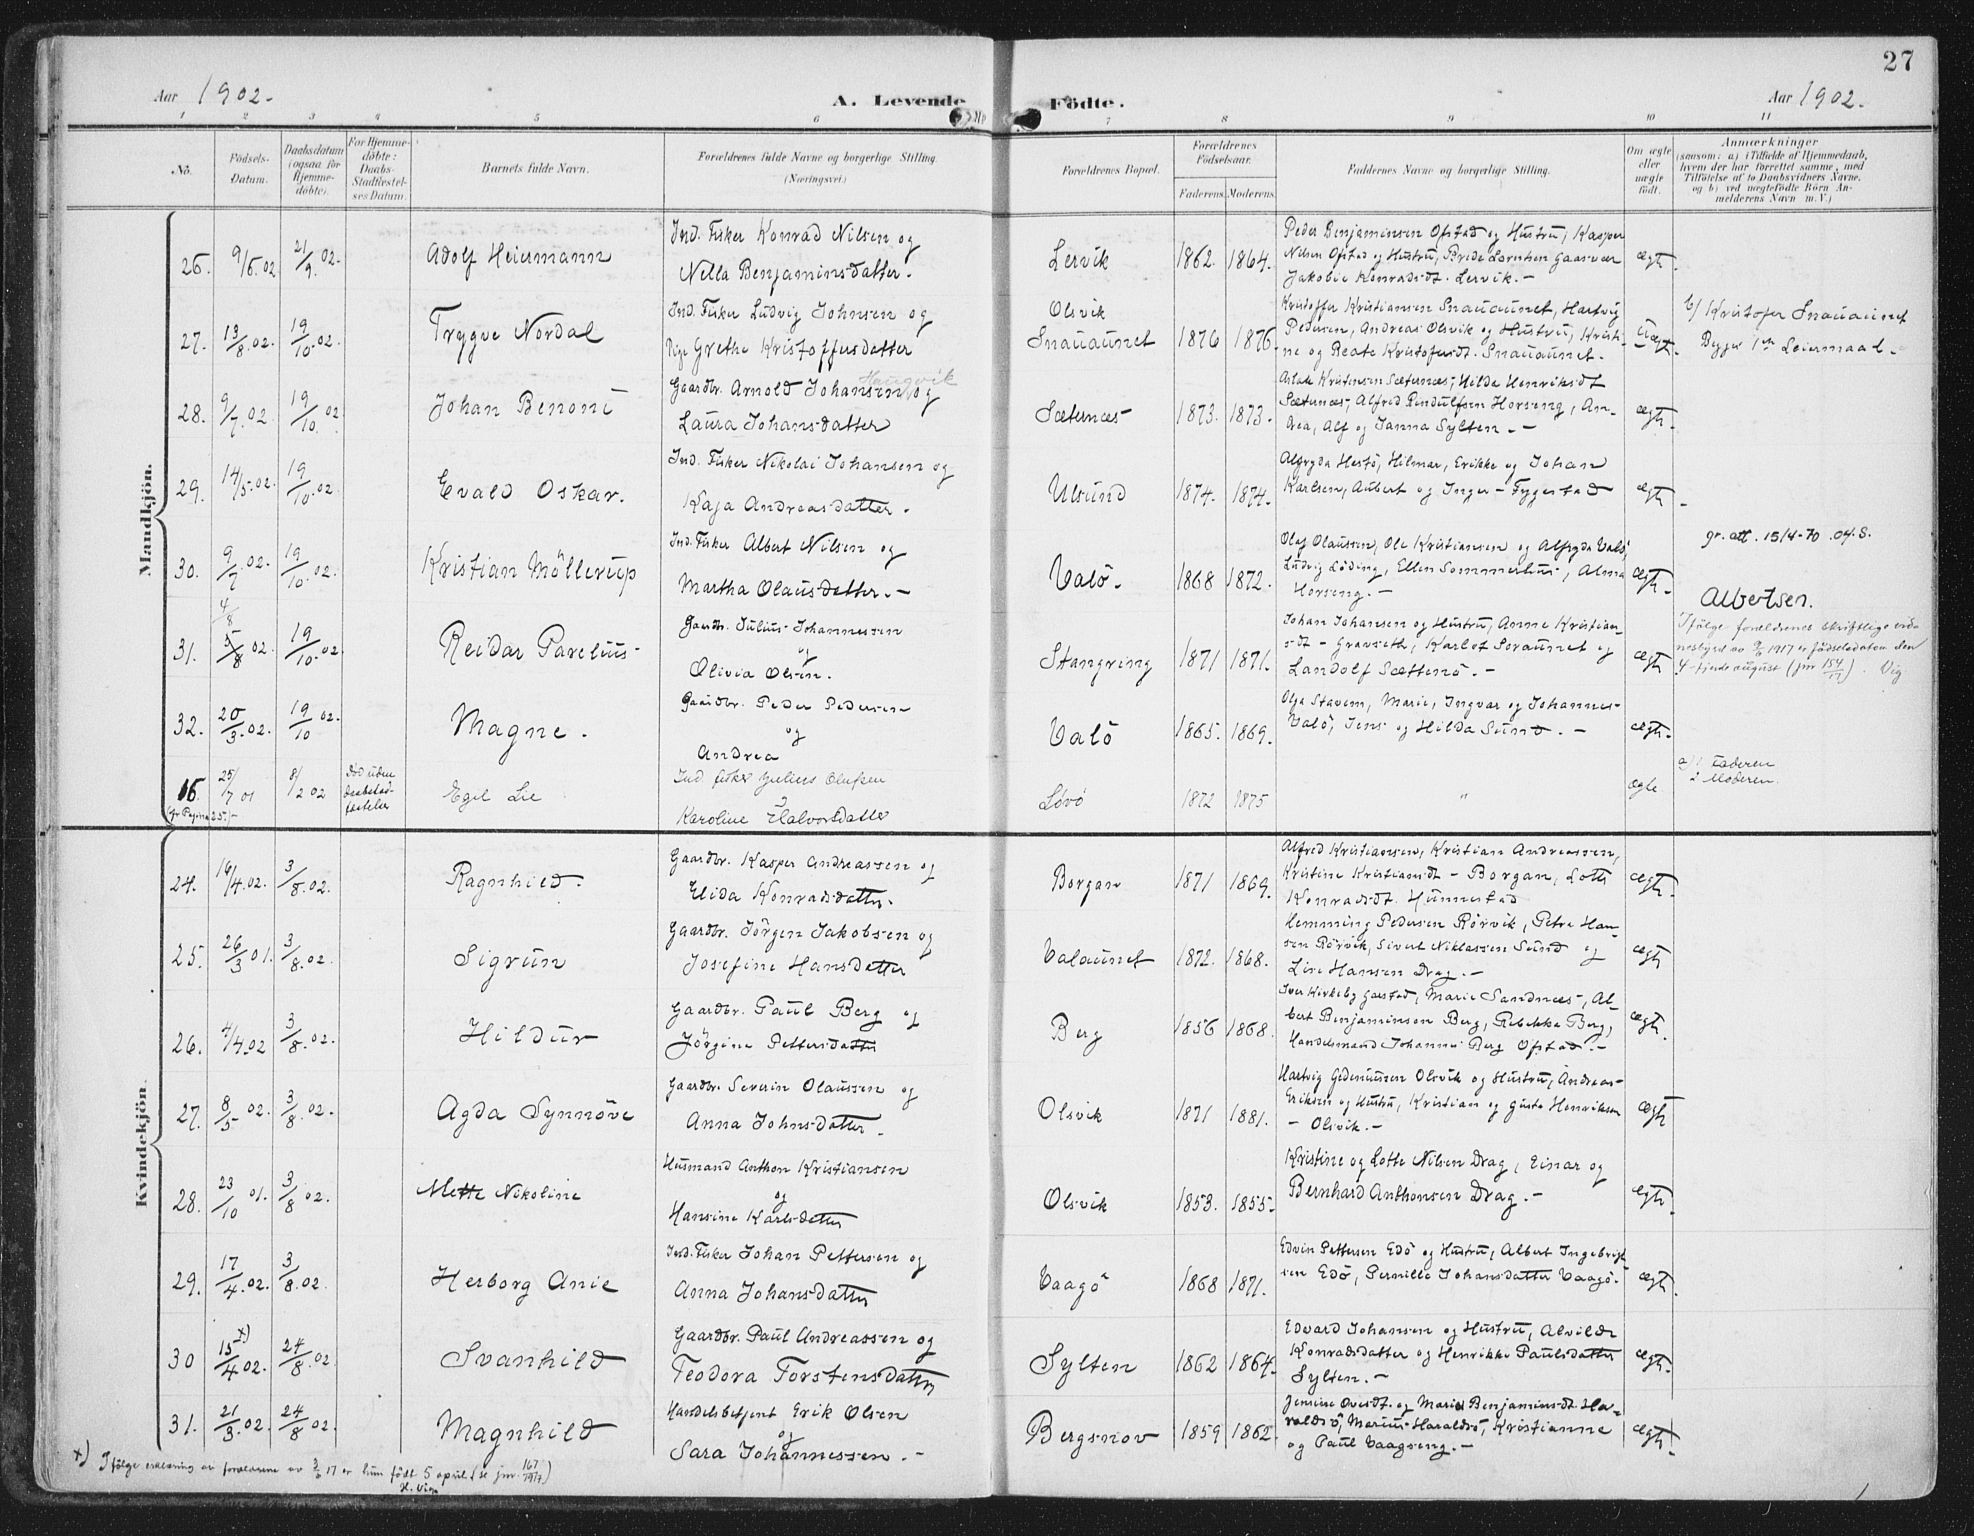 27
Aar 1902.
A. Levende Födte.
Aar 1902.
1 2 3 4 5 6 7 8 9 10 11
No.
Födsels-
Datum.
Daabsdatum
(ogsaa for
Hjemme-
döbte).
For Hjemme-
döbte:
Daabs-
Stadfæstel-
ses Datum.
Barnets fulde Navn.
Forældrenes fulde Navne og borgerlige Stilling.
(Næringsvei.)
Forældrenes Bopæl.
Forældrenes
Födselsaar.
Faderens. Moderens.
Faddernes Navne og borgerlige Stilling.
Om ægte
eller
uægte
födt.
Anmærkninger
(saasom: a) i Tilfælde af Hjemmedaab,
hvem der har forrettet samme, med
Tilföielse af to Daabsvidners Navne,
og b) ved uægtefödte Börn An-
melderens Navn m. V.)
Mandkjön.
26. 9/6 02. 21/9 02. Adolf Heiermann
Ind. Fisker Konrad Nilsen og
Nella Benjaminsdatter.
Lervik 1862. 1864.
Peder Benjaminsen Ofstad og Hustru, Kasper
Nilsen Ofstad og Hustru, Gaasvær
Jakobie Konradsdt. Lervik.-
ægte.
27. 13/8 02. 19/10 02. Trygve Nordal
Ind. Fisker Ludvig Johnsen og
Pige Grethe Kristoffersdatter
Olsvik
Snauaunet 1876 1876.
Kristoffer Kristiansen Snauaunet, Hartvig
Pedersen, Andreas Olsvik og Hustru, Kristi-
ne og Beate Kristofersdt. Snauaunet.
Uægte.
b/ Kristofer Snauaunet
Begges 1ste Leiermaal.
28. 9/7 02. 19/10 02 Johan Benoni
Haugvik
Gaardbr. Arnold Johansen og
Laura Johansdatter
Sæternæs 1873. 1873.
Aslak Kristensen Sæternæs, Hilda Henriksdt
Sæternæs, Alfred Horseng, An-
drea, Alf og Janna Sylten.-
ægte.
29. 14/5 02. 19/10 02. Evald Oskar.
Ind. Fisker Nikolai Johansen og
Kaja Andreasdatter.
Ulsund 1874. 1874.
Alfryda Hestö, Hilmar, Erikke og Johan
Karlsen, Aubert og Inger - Fygestad
ægte.
30. 9/7 02. 19/10 02. Kristian Möllerup
Ind. Fisker Albert Nilsen og
Martha Olausdatter.-
Valö. 1868 1872.
Olaf Olaussen, Ole Kristiansen og Alfryda Valö,
Ludvig Löding, Ellen Sommerhus, Alma
Horseng.-
ægte.
gr. att. 15/4-70 .04.S.
Albertsen.
31. 4/8 5/8 02. 19/10 02 Reidar Parelius
Gaardbr. Julius Johannessen
og
Olivia Olsen.
Stangring 1871 1871.
Johan Johansen og Hustru, Anne Kristian-
sdt - Gravseth, Karlot Soraunet og
Landolf Sættenö.-
ægte
Ifölge forældrenes skriftlige vid-
nesbyrd av 3/6 1917 er födselsdatoen den
4-fjerde august (jnr 154/17). Vig
32. 20/3 02. 19/10 02. Magne.
Gaardbr. Peder Pedersen
og
Andrea
Valö 1865. 1869.
Olga Stavem, Marie, Ingvar og Johannes-
Valö, Jens og Hilda Sund.-
ægte.
16. 25/7 01 8/2 02 Död uden daabstad-
fæstelse
(fr. Pagina 25.)-
Egil Lie
Ind. fisker Julius Olufsen
og
Karoline Halvorsdatter
Lövö 1872 1875
"
ægte
a) 1. Faderen
2 Moderen.
Kvindekjön
24. 16/4 02. 3/8 02. Ragnhild.
Gaardbr. Kasper Andreassen og
Elida Konradsdatter.
Borgan 1871 1869.
Alfred Kristiansen, Kristian Andreassen,
Kristine Kristiansdt - Borgan, Lotte
Konradsdt. Hunnestad
ægte.
25. 26/3 01. 3/8 02. Sigrun
Gaardbr. Jörgen Jakobsen og
Josefine Hansdatter
Valaunet 1872. 1868.
Hemming Pedersen Rörvik, Petra Han-
sen Rörvik, Sivert Niklassen Sund og
Line Hansen Drag.-
ægte
26. 4/4 02 3/8 02. Hildur
Gaardbr. Paul Berg og
Jörgine Pettersdatter
Berg 1856 1868.
Iver Kirkeby Garstad, Marie Sandnæs, Al-
bert Benjaminsen Berg, Rebekka Berg,
Handelsmand Johannes Berg Ofstad.-
ægte.
27. 8/5 02. 3/8 02. Agda Synnöve
Gaardbr. Severin Olaussen og
Anna Johnsdatter.
Olsvik 1871 1881.
Hartvig Gedeniussen Olsvik og Hustru, Andreas
Eriksen og Hustru, Kristian og Gusta Henriksen
- Olsvik.-
ægte
28. 23/10 01. 3/8 02. Mette Nikoline
Husmand Anthon Kristiansen
og
Hansine Karlsdatter
Olsvik 1853. 1855.
Kristine og Lotte Nilsen Drag, Einar og
Bernhard Anthonsen Drag.-
ægte.
29. 17/4 02. 3/8 02. Herborg Anie
Ind. Fisker Johan Pettersen og
Anna Johansdatter
Vaagö 1868 1871.
Edvin Pettersen Edö og Hustru, Albert Ingebrigt-
sen Edö, Pernille Johansdatter Vaagö.
ægte.
30 15/4 x) 02. 24/8 02. Svanhild
Gaardbr. Paul Andreassen og
Teodora Torstensdatter
Sylten 1862 1864.
Edvard Johansen og Hustru, Alvilde
Konradsdatter og Henrikke Paulsdatter
Sylten.-
ægte.
31. 21/3 02. 24/8 02. Magnhild
Handelsbetjent Erik Olsen
og
Sara Johannessen.-
Bergsnov 1859 1862.
Jensine Ovesdt. og Marie Benjaminsdt. Ha-
raldsö, Marius Haraldsö, Kristianne
og Paul Vaagseng.-
ægte.
x) Ifölge erklæring av forældrene av 3/6 17 er hun födt 5 april (se jnr. 167/1917)
H. Vig